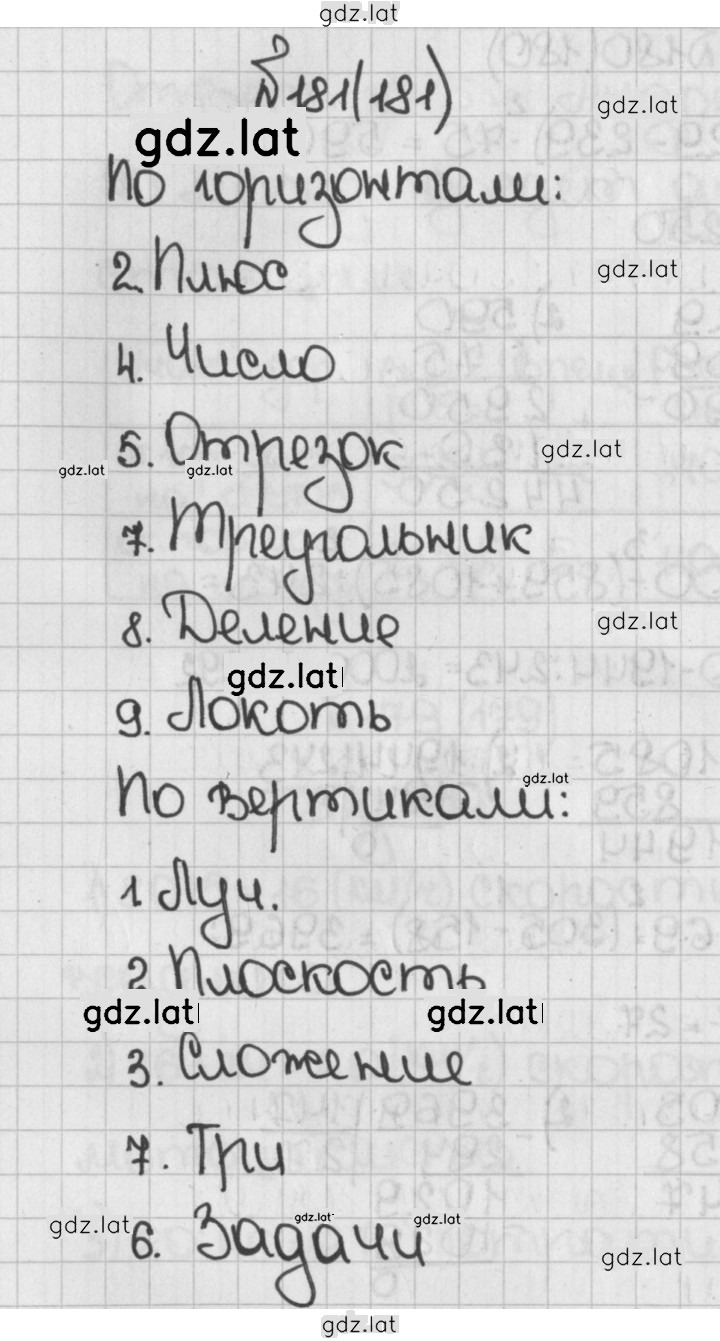 gdz.lat
№181(181)
gdz.lat
gdz.lat
По горизонтали:
2. Плюс
gdz.lat
4. Число
5. Отрезок
gdz.lat
gdz.lat
gdz.lat
7. Треугольник
8. Деление
gdz.lat
gdz.lat
9. Локоть
gdz.lat
По вертикали:
1 Луч.
2 Плоскость
gdz.lat
gdz.lat
3. Сложение
7. Три
gdz.lat
gdz.lat
gdz.lat
6. Задачи
gdz.lat
gdz.lat